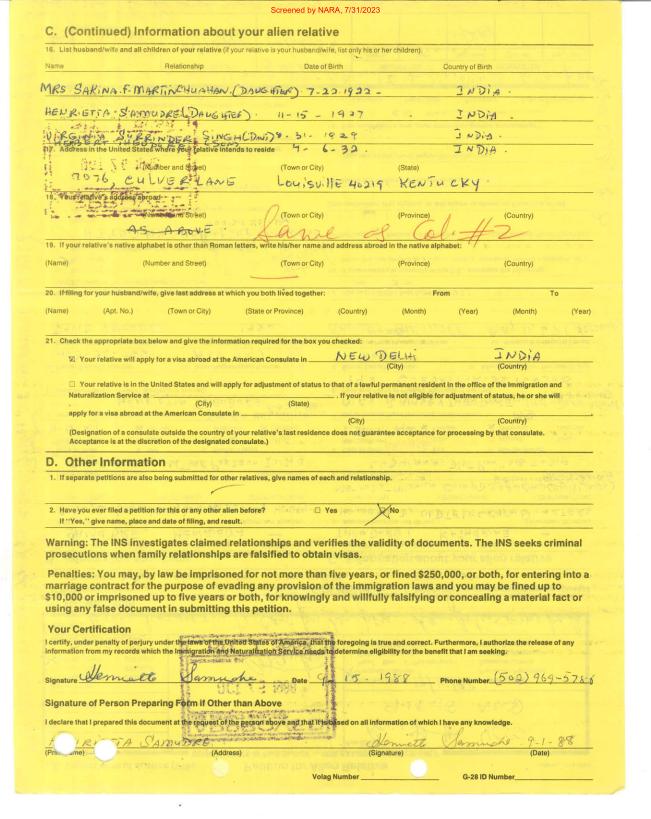 Screened by NARA, 7/31/2023
C. (Continued) Information about your alien relative
16. List husband/wife and all children of your relative (if your relative is your husband/wife, list only his or her children).
Name Relationship Date of Birth Country of Birth
MRS SAKINA.F.MARTINCHUAHAN.(DAUGHTER) 7-22-1922- INDIA.
HENRIETTA.SAMUDRE(DAUGHTER). 11-15-1927 INDIA.
VIRGINIA SURRINDER SINGH 8-31-1929 INDIA.
HERBERT THEODORE (SON) 4-6-32. INDIA.
17. Address in the United States where your relative intends to reside
(Number and Street) (Town or City) (State)
7076, CULVER LANE LOUISVILLE 40219 KENTUCKY.
18. Your relative's address abroad
(Number and Street) (Town or City) (Province) (Country)
AS ABOVE. Same as Col. #2
19. If your relative's native alphabet is other than Roman letters, write his/her name and address abroad in the native alphabet:
(Name) (Number and Street) (Town or City) (Province) (Country)
20. If filing for your husband/wife, give last address at which you both lived together: From To
(Name) (Apt. No.) (Town or City) (State or Province) (Country) (Month) (Year) (Month) (Year)
21. Check the appropriate box below and give the information required for the box you checked:
☒ Your relative will apply for a visa abroad at the American Consulate in NEW DELHI INDIA
(City) (Country)
☐ Your relative is in the United States and will apply for adjustment of status to that of a lawful permanent resident in the office of the Immigration and
Naturalization Service at . If your relative is not eligible for adjustment of status, he or she will
(City) (State)
apply for a visa abroad at the American Consulate in .
(City) (Country)
(Designation of a consulate outside the country of your relative's last residence does not guarantee acceptance for processing by that consulate.
Acceptance is at the discretion of the designated consulate.)
D. Other Information
1. If separate petitions are also being submitted for other relatives, give names of each and relationship.
2. Have you ever filed a petition for this or any other alien before? ☐ Yes ☒ No
If "Yes," give name, place and date of filing, and result.
Warning: The INS investigates claimed relationships and verifies the validity of documents. The INS seeks criminal
prosecutions when family relationships are falsified to obtain visas.
Penalties: You may, by law be imprisoned for not more than five years, or fined $250,000, or both, for entering into a
marriage contract for the purpose of evading any provision of the immigration laws and you may be fined up to
$10,000 or imprisoned up to five years or both, for knowingly and willfully falsifying or concealing a material fact or
using any false document in submitting this petition.
Your Certification
I certify, under penalty of perjury under the laws of the United States of America, that the foregoing is true and correct. Furthermore, I authorize the release of any
information from my records which the Immigration and Naturalization Service needs to determine eligibility for the benefit that I am seeking.
Signature Henriette Samudre Date 9-15-1988 Phone Number (502) 969-5788
Signature of Person Preparing Form if Other than Above
I declare that I prepared this document at the request of the person above and that it is based on all information of which I have any knowledge.
HENRIETTA SAMUDRE Henriette Samudre 9-1-88
(Print Name) (Address) (Signature) (Date)
Volag Number G-28 ID Number